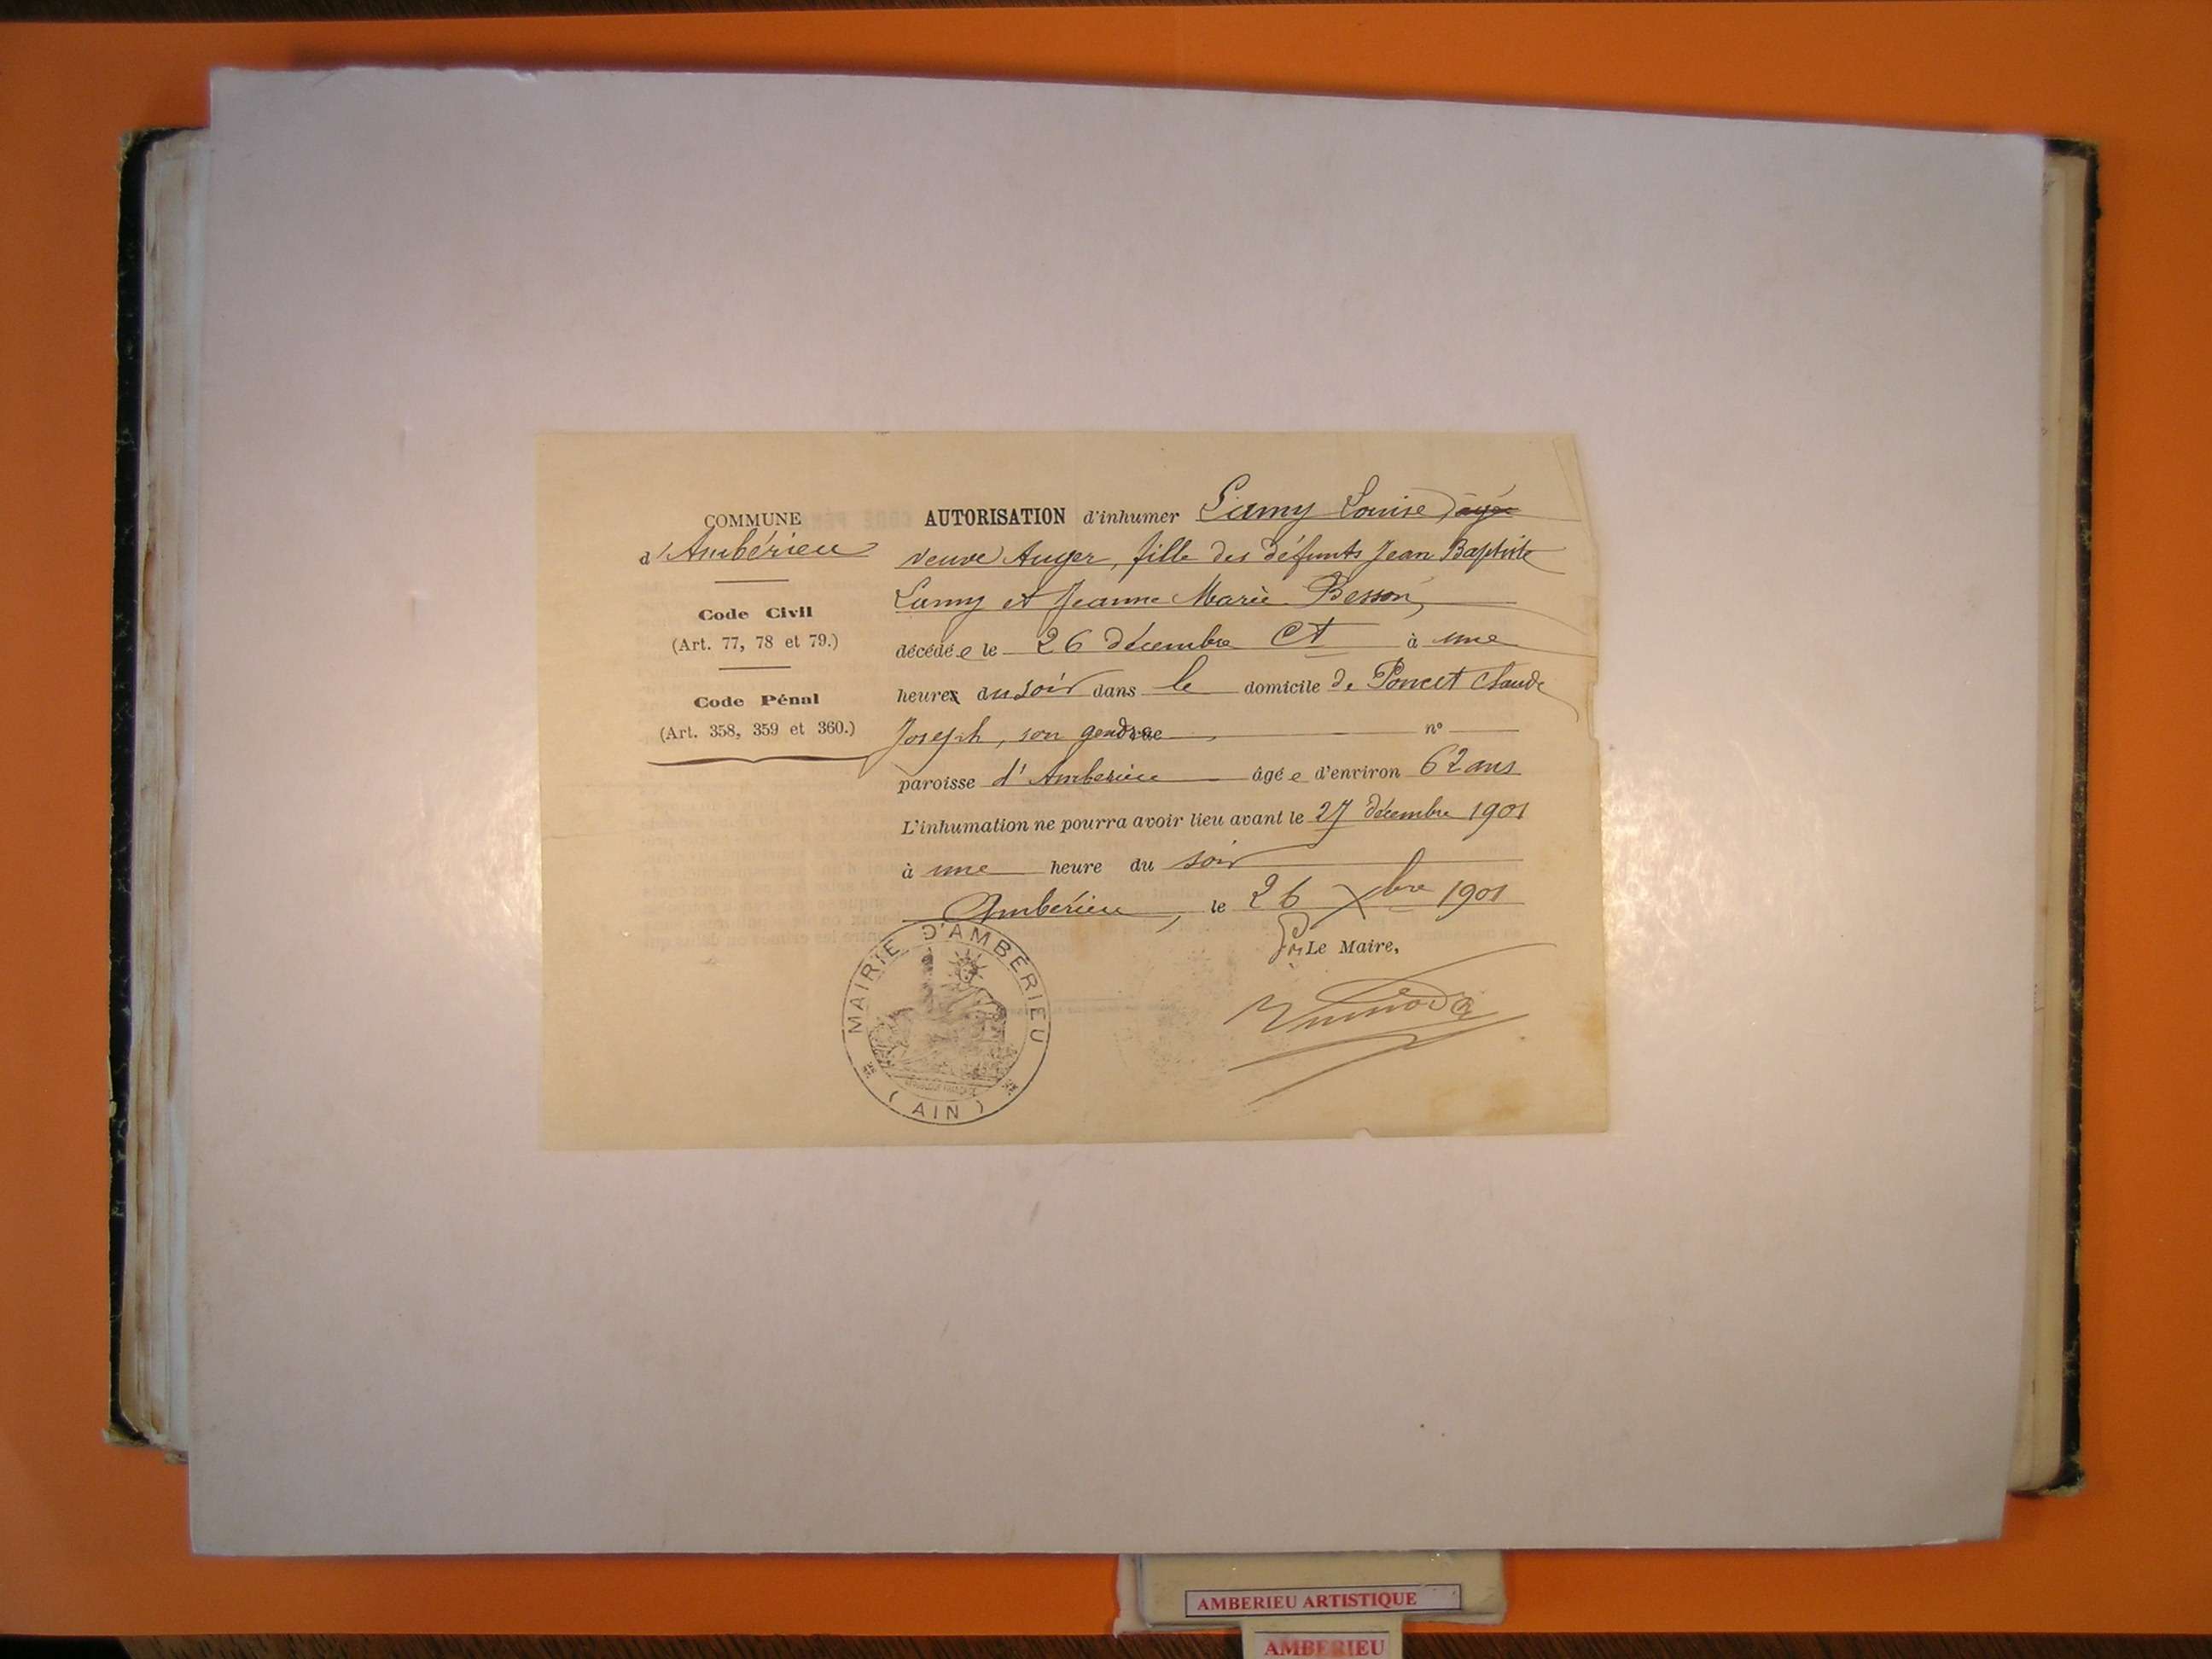 COMMUNE
d'Ambérieu
Code Civil
(Art. 77, 78 et 79.)
Code Pénal
(Art. 358, 359 et 360.)
AUTORISATION d'inhumer Lamy Louise
veuve Auger, fille des défunts Jean Baptiste
Lamy et Jeanne Marie Besson,
décédée le 26 décembre Ct à une
heure du soir dans le domicile de Poncet Claude
Joseph, son gendre nº
paroisse d'Ambérieu âgée d'environ 62 ans
L'inhumation ne pourra avoir lieu avant le 27 décembre 1901
à une heure du soir
Ambérieu, le 26 Xbre 1901
Pr Le Maire,
MAIRIE D'AMBÉRIEU
(AIN)
AMBERIEU ARTISTIQUE
AMBERIEU